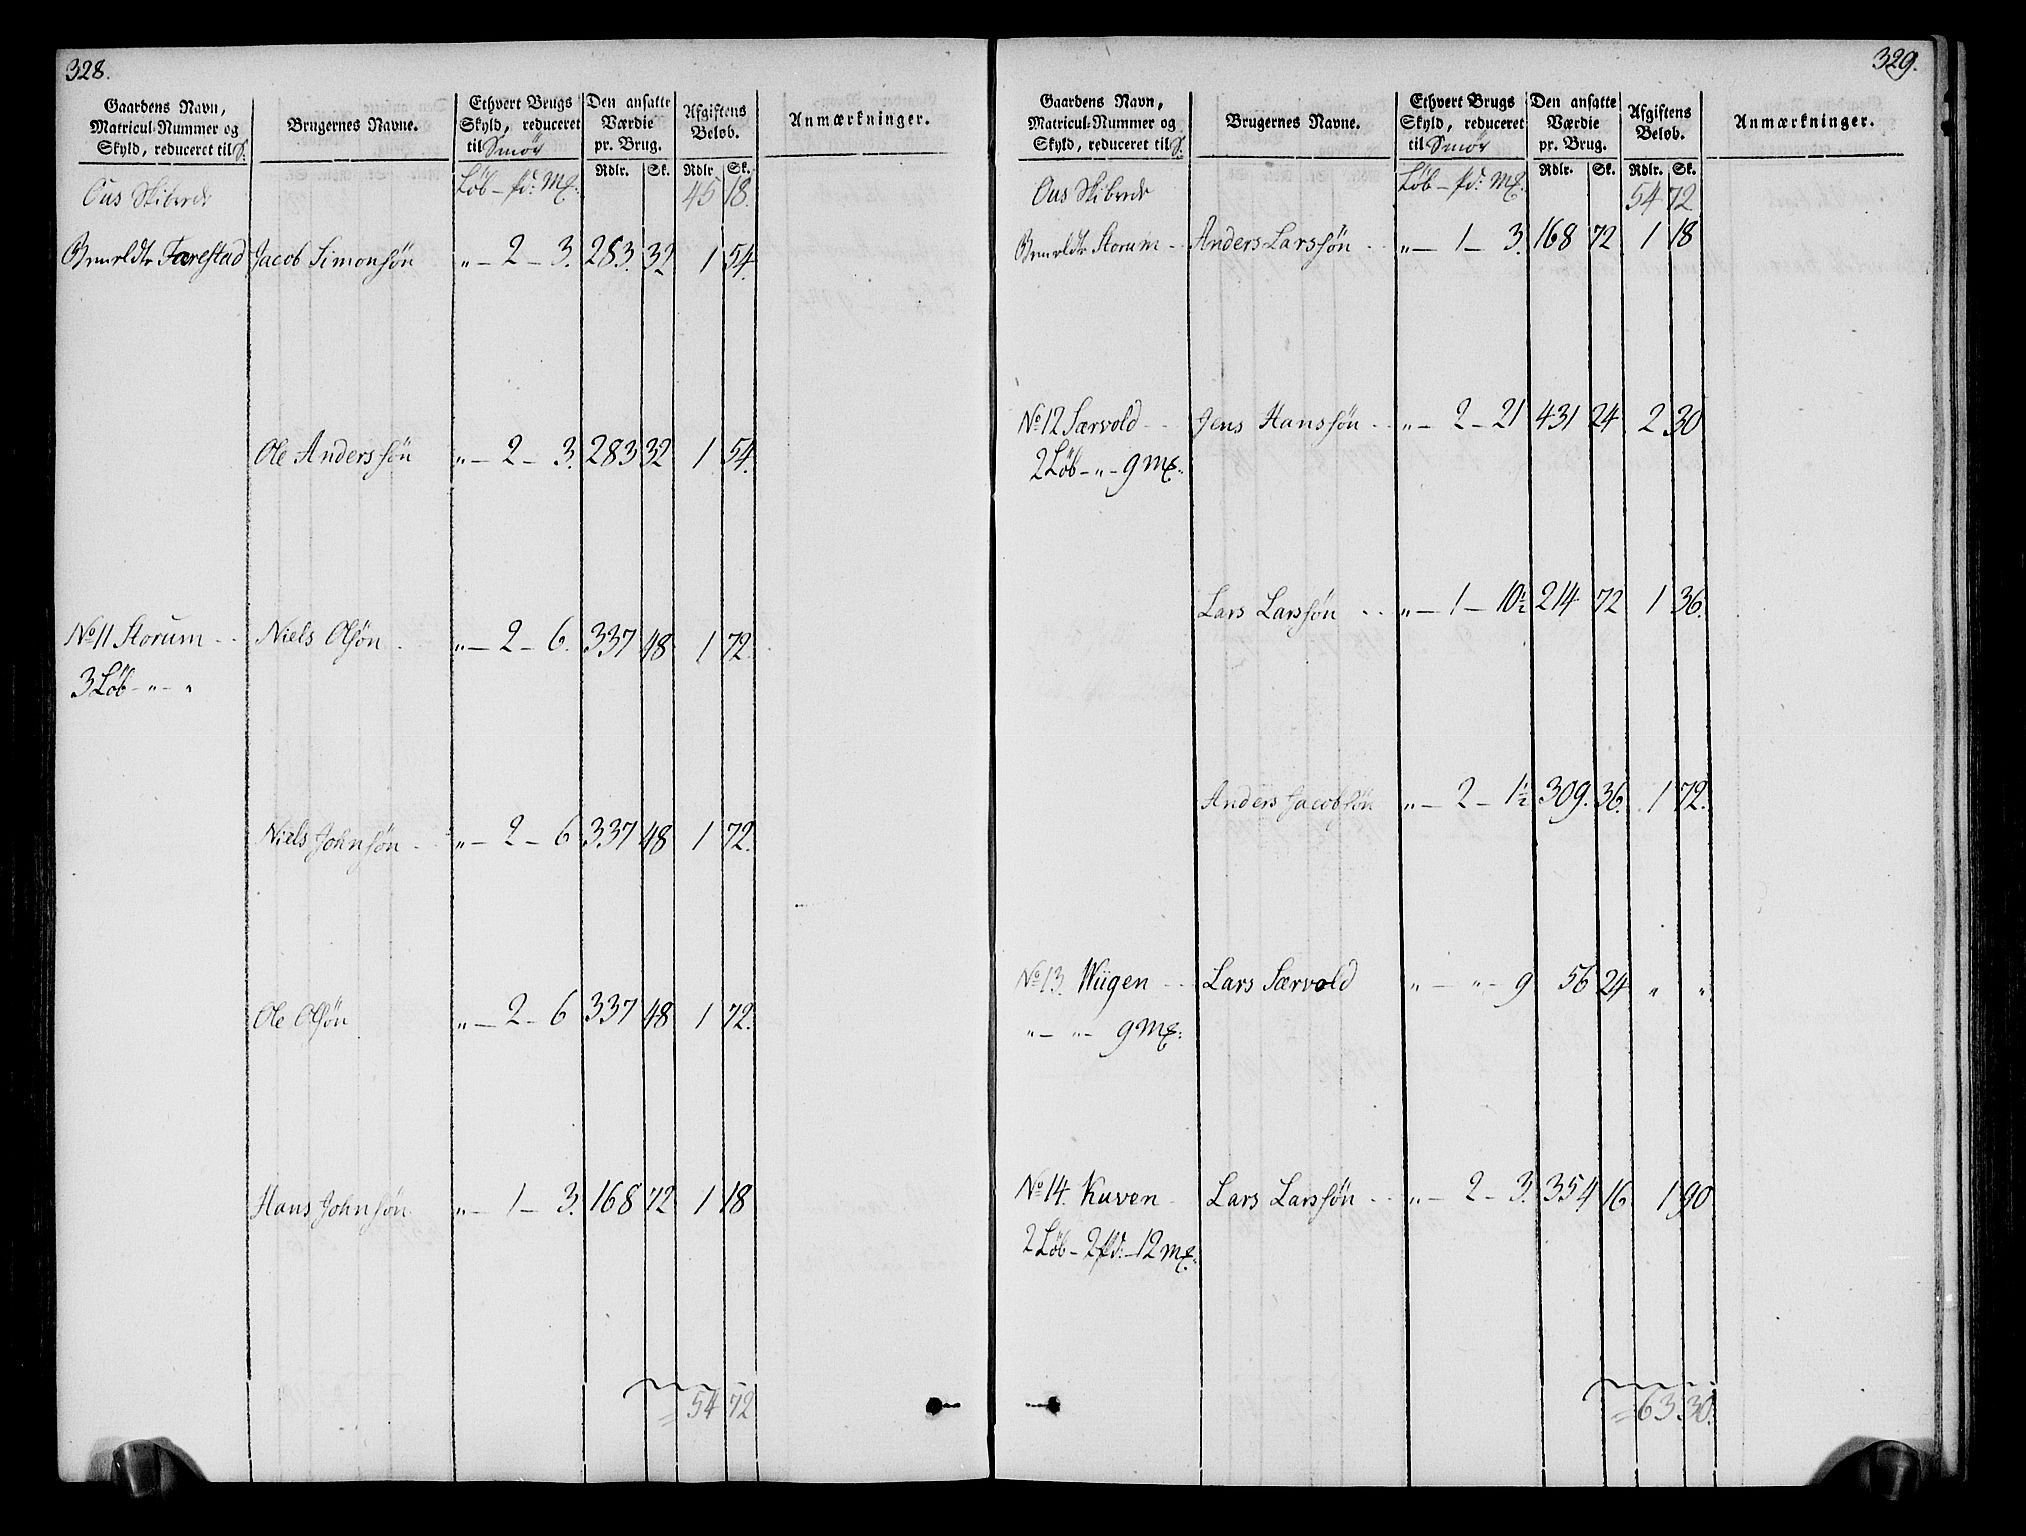 328.
Gaardens Navn, Matricul-Nummer og Skyld, reduceret til S.
Brugernes Navne.
Ethvert Brugs Skyld, reduceret til Smör
Den ansatte Værdie pr. Brug.
Afgiftens Beløb.
Anmærkninger.
Rdlr. Sk. Rdlr. Sk.
Ous Skibrede Løb - pd: Mk: 45 18.
Farestad Jacob Simonsön " - 2 - 3. 283. 32 1 54.
Ole Anderssön " - 2 - 3. 283 32 1 54.
No 11 Storum Niels Olsön " - 2 - 6. 337 48 1 72.
3 Löb - " - "
Niels Johnsön " - 2 - 6 337 48 1 72.
Ole Olsön " - 2 - 6 337 48 1 72.
Hans Johnsön " - 1 - 3. 168 72 1 18
54 72
329.
Gaardens Navn, Matricul-Nummer og Skyld, reduceret til S.
Brugernes Navne.
Ethvert Brugs Skyld, reduceret til Smör
Den ansatte Værdie pr. Brug.
Afgiftens Beløb.
Anmærkninger.
Rdlr. Sk. Rdlr. Sk.
Ous Skibrede Løb - pd: Mk: 54 72
Storum Anders Larssön " - 1 - 3. 168 72 1 18
No 12 Særvold Jens Hanssön " - 2 - 21 431 24 2 30
2 Löb - " - 9 Mk:
Lars Larssön " - 1 - 10½ 214 72 1 36.
Anders Jacobsön " - 2 - 1½ 309. 36. 1 72.
No 13. Wiigen Lars Særvold " - " - 9 56 24 " "
" - " - 9 Mk:
No 14. Kuven Lars Larssön " - 2 - 3. 354 16 1 90
2 Löb - 2 pd: - 12 Mk:
63. 30.